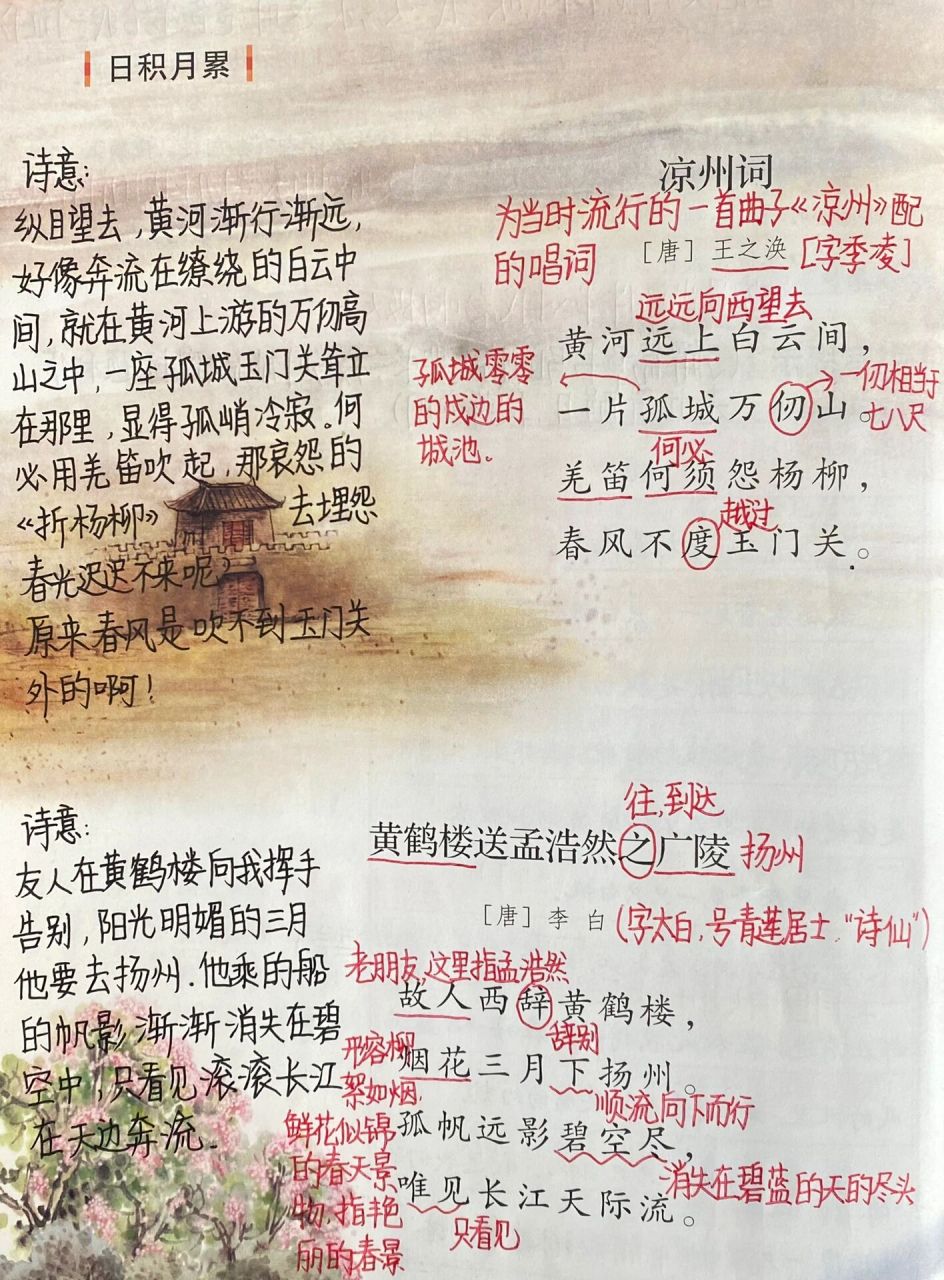 日积月累
诗意:
纵目望去,黄河渐行渐远,
好像奔流在缭绕的白云中
间,就在黄河上游的万仞高
山之中,一座孤城玉门关耸立
在那里,显得孤峭冷寂。何
必用羌笛吹起,那哀怨的
《折杨柳》去埋怨
春光迟迟不来呢?
原来春风是吹不到玉门关
外的啊!
凉州词
为当时流行的一首曲子《凉州》配
的唱词
[唐] 王之涣 [字季凌]
远远向西望去
黄河远上白云间,
孤城零零
的戍边的
城池。
一仞相当于
七八尺
一片孤城万仞山。
何必
羌笛何须怨杨柳,
越过
春风不度玉门关。
诗意:
友人在黄鹤楼向我挥手
告别,阳光明媚的三月
他要去扬州.他乘的船
的帆影渐渐消失在碧
空中,只看见滚滚长江
在天边奔流.
往,到达
黄鹤楼送孟浩然之广陵 扬州
[唐] 李白 (字太白,号青莲居士."诗仙")
老朋友,这里指孟浩然
故人西辞黄鹤楼,
辞别
烟花三月下扬州。
形容柳
絮如烟,
鲜花似锦
的春天景
物,指艳
丽的春景
顺流向下而行
孤帆远影碧空尽,
消失在碧蓝的天的尽头
唯见长江天际流。
只看见